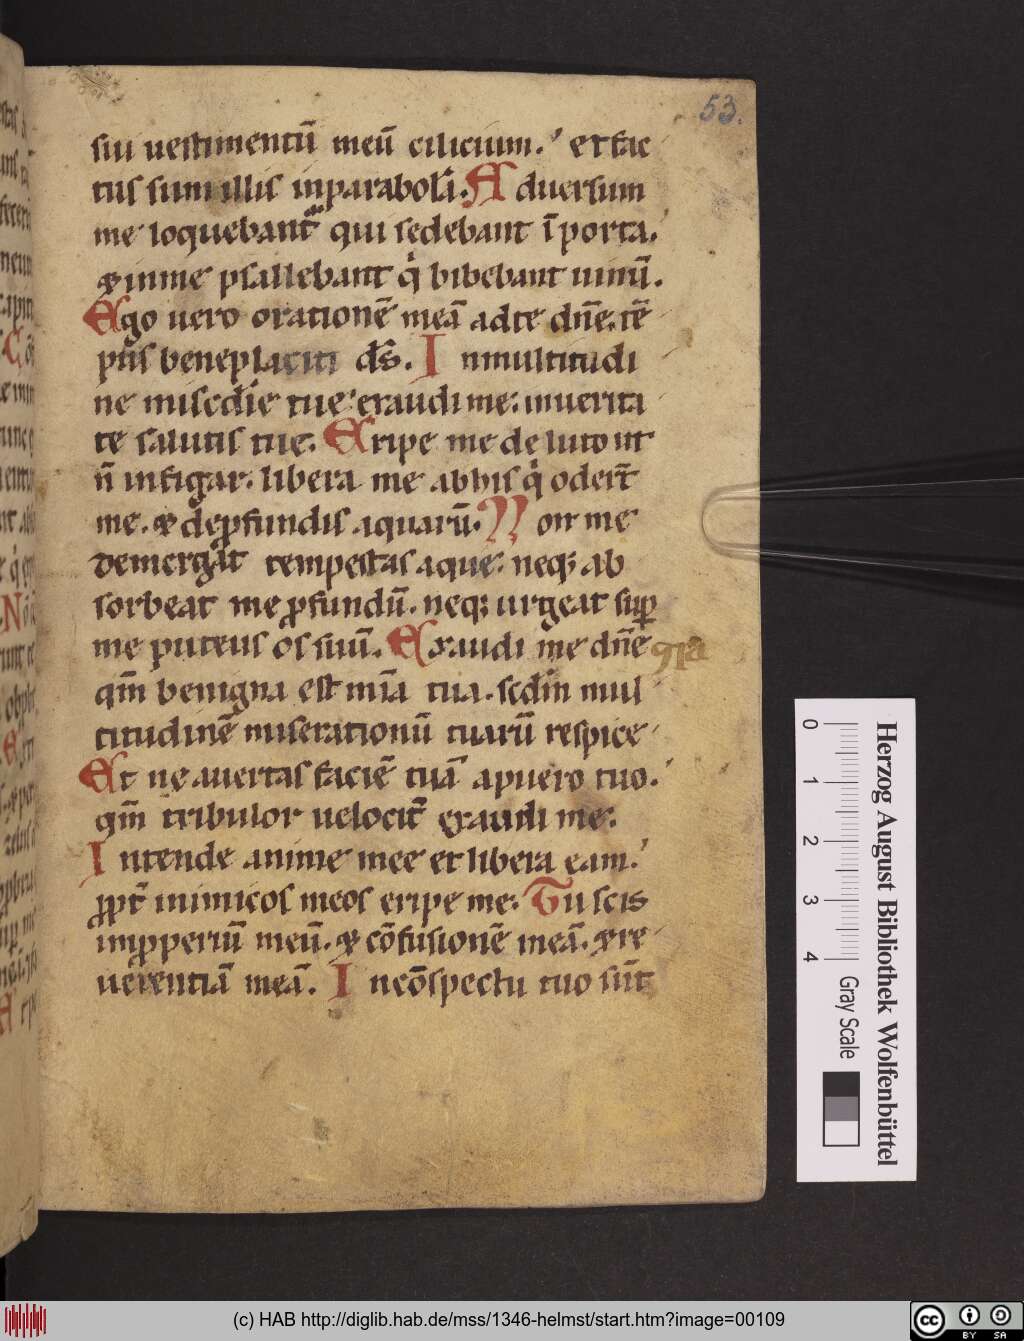 53.
sui uestimentū meū cilicium. et fac
tus sum illis inparabolā. Aduersum
me loquebant qui sedebant ī porta.
& inme psallebant q̇ bibebant uinū.
Ego uero orationē meā adte dn̄e. tē
pus beneplaciti ds̄. Inmultitudi
ne miscdīe tue exaudi me. inuerita
te salutis tue. Eripe me de luto ut
n̄ infigar. libera me abhis q̇ odert̄
me. & de ꝓfundis aquarū. Non me
demergat tempestas aque. neq; ab
sorbeat me ꝓfundū. neq; urgeat sup̄
me puteus os suū. Exaudi me dn̄e
qm̄ benigna est mīa tua. scdm̄ mul
titudinē miserationū tuarū respice
Et ne auertas faciē tuā apuero tuo.
qm̄ tribulor uelocit̄ exaudi me.
Intende anime mee et libera eam.
ꝓpt̄ inimicos meos eripe me. Tu scis
inꝓperiū meū. & cōfusionē meā. & re
uerentiā meā. Incōspectu tuo sūt
Herzog August Bibliothek Wolfenbüttel
0 1 2 3 4 Gray Scale
(c) HAB http://diglib.hab.de/mss/1346-helmst/start.htm?image=00109
cc BY SA